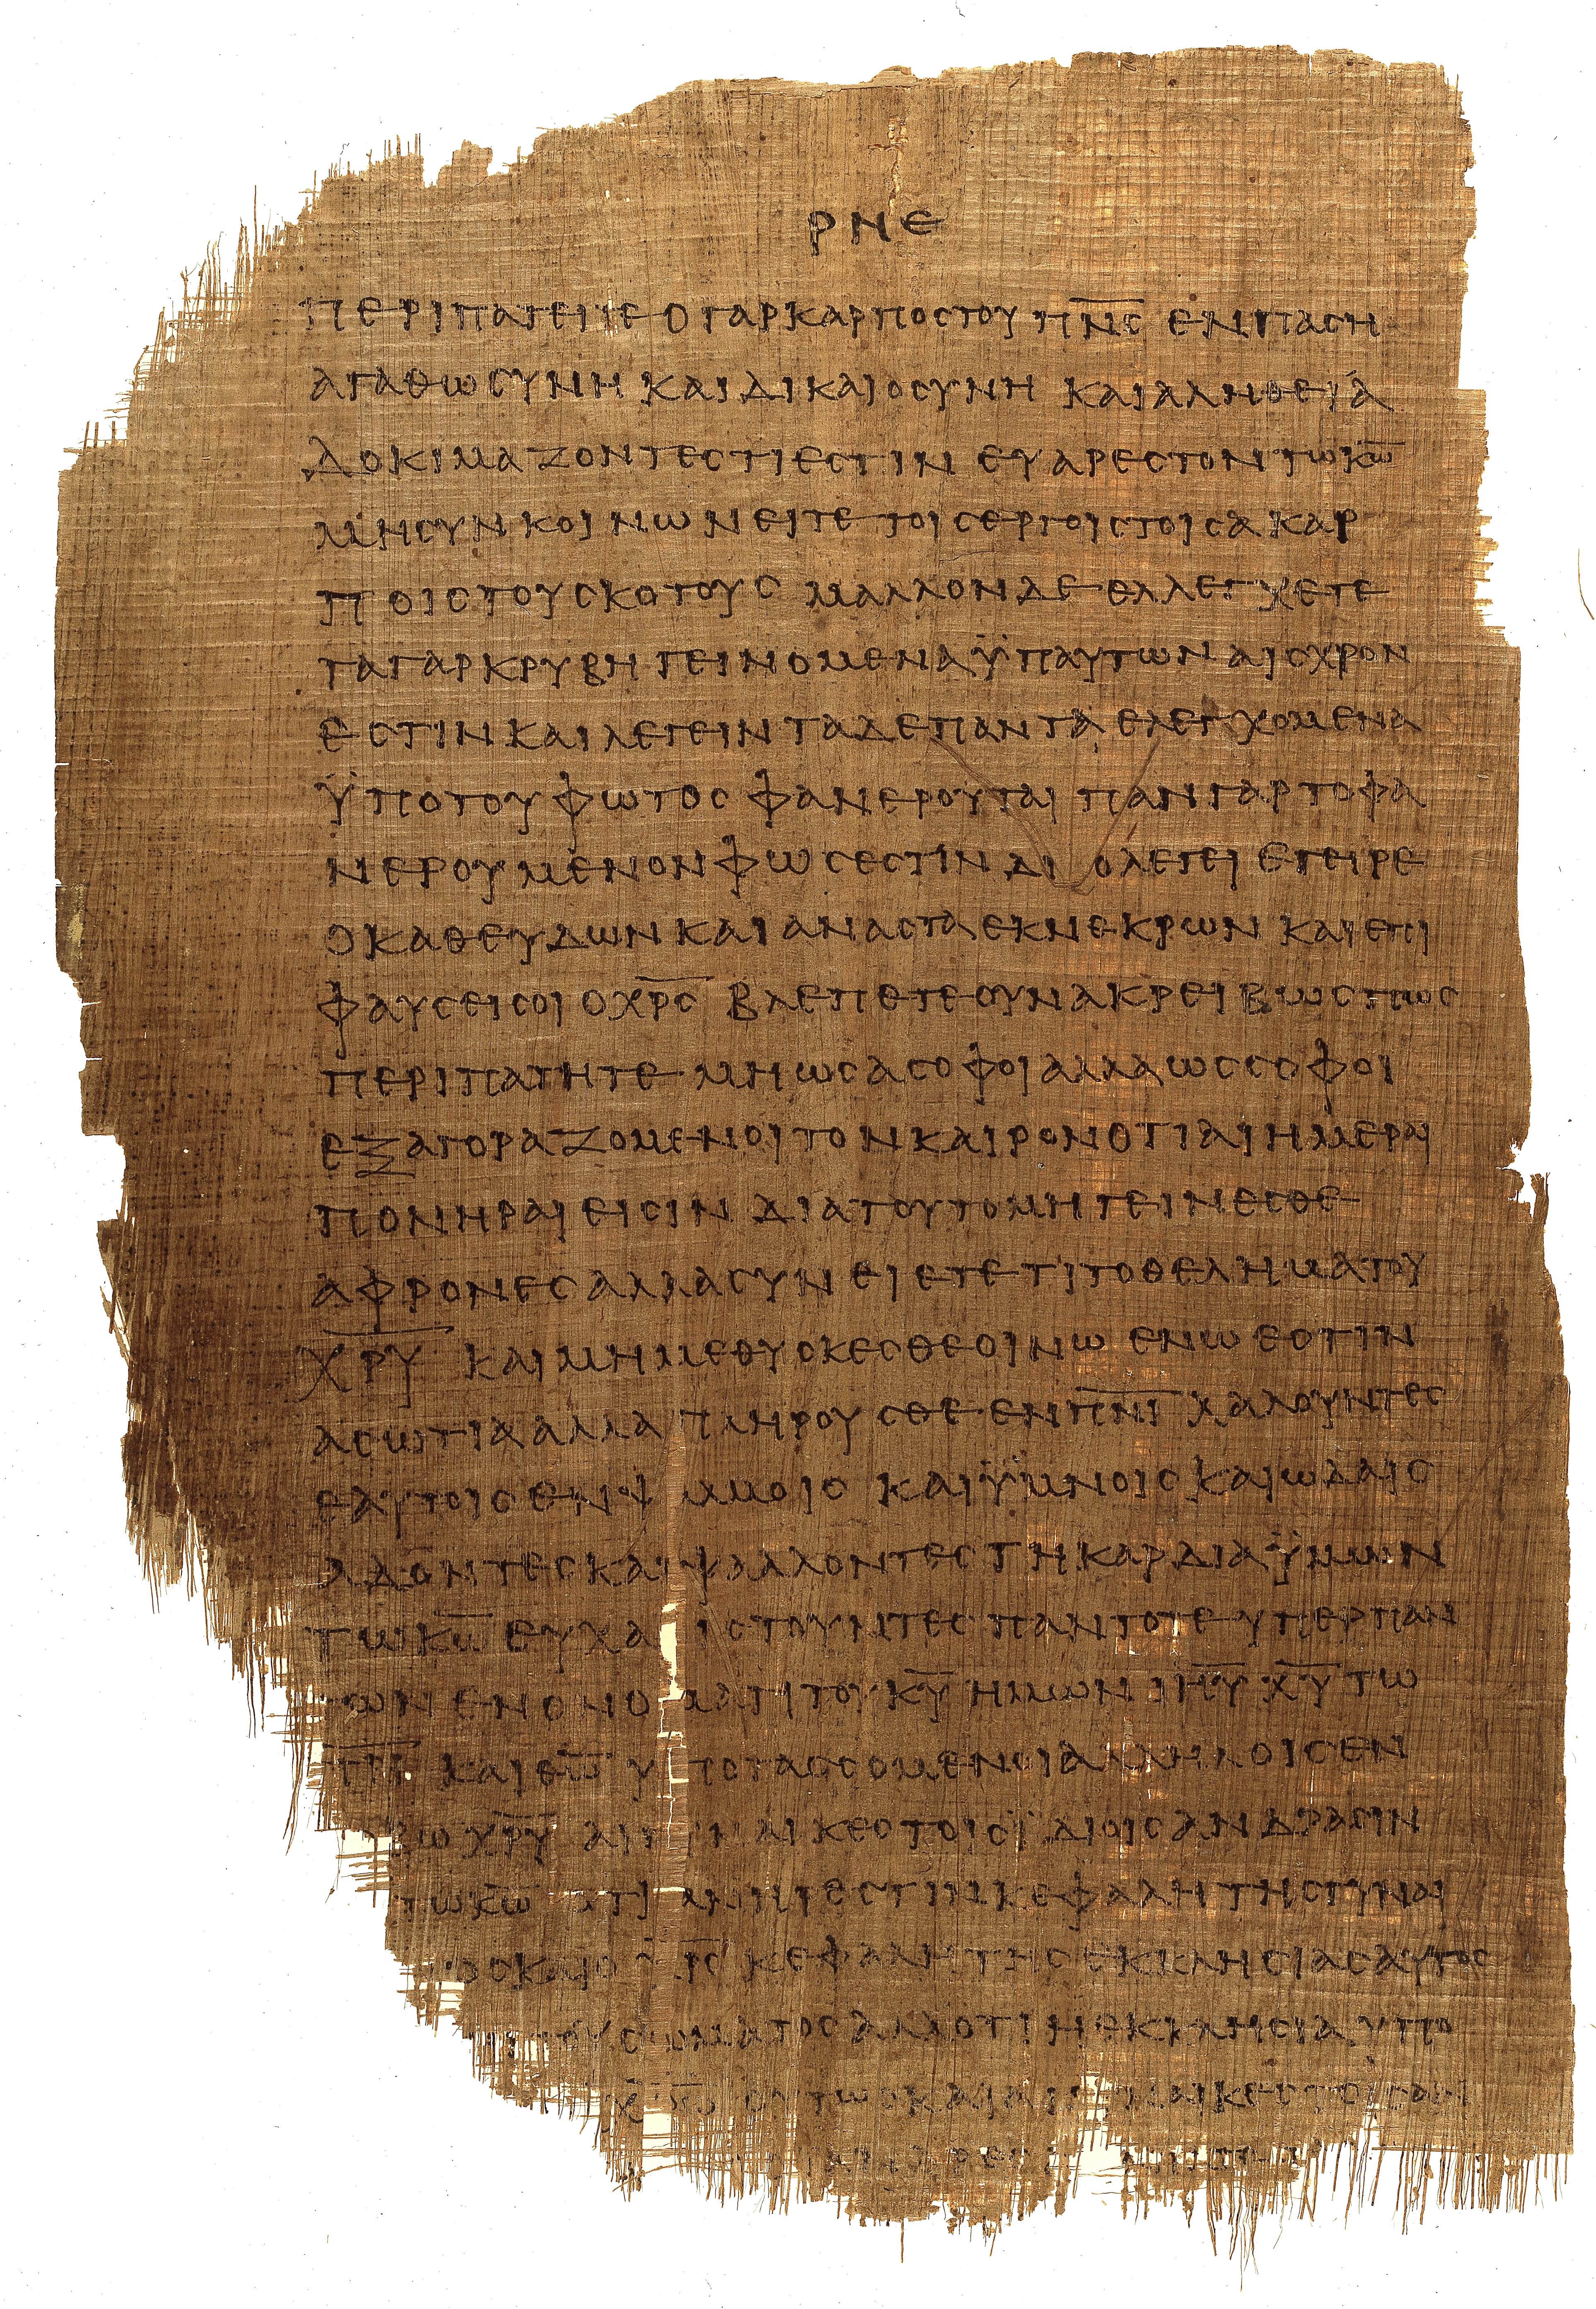 ΡΝΕ
ΠΕΡΙΠΑΤΕΙΤΕ Ο ΓΑΡ ΚΑΡΠΟΣ ΤΟΥ Π̅Ν̅Ϲ̅ ΕΝ ΠΑϹΗ
ΑΓΑΘΩϹΥΝΗ ΚΑΙ ΔΙΚΑΙΟϹΥΝΗ ΚΑΙ ΑΛΗΘΕΙΑ
ΔΟΚΙΜΑΖΟΝΤΕϹ ΤΙ ΕϹΤΙΝ ΕΥΑΡΕϹΤΟΝ ΤΩ Κ̅Ω̅
ΜΗ ϹΥΝΚΟΙΝΩΝΕΙΤΕ ΤΟΙϹ ΕΡΓΟΙϹ ΤΟΙϹ ΑΚΑΡ
ΠΟΙϹ ΤΟΥ ϹΚΟΤΟΥϹ ΜΑΛΛΟΝ ΔΕ ΕΛΛΕΓΧΕΤΕ
ΤΑ ΓΑΡ ΚΡΥΒΗ ΓΕΙΝΟΜΕΝΑ Ϋ̈Π ΑΥΤΩΝ ΑΙϹΧΡΟΝ
ΕϹΤΙΝ ΚΑΙ ΛΕΓΕΙΝ ΤΑ ΔΕ ΠΑΝΤΑ ΕΛΕΓΧΟΜΕΝΑ
ΫΠΟ ΤΟΥ ΦΩΤΟϹ ΦΑΝΕΡΟΥΤΑΙ ΠΑΝ ΓΑΡ ΤΟ ΦΑ
ΝΕΡΟΥΜΕΝΟΝ ΦΩϹ ΕϹΤΙΝ ΔΙΟ ΛΕΓΕΙ ΕΓΕΙΡΕ
Ο ΚΑΘΕΥΔΩΝ ΚΑΙ ΑΝΑϹΤΑ ΕΚ ΝΕΚΡΩΝ ΚΑΙ ΕΠΙ
ΦΑΥϹΕΙ ϹΟΙ Ο Χ̅Ρ̅Ϲ̅ ΒΛΕΠΕΤΕ ΟΥΝ ΑΚΡΕΙΒΩϹ ΠΩϹ
ΠΕΡΙΠΑΤΗΤΕ ΜΗ ΩϹ ΑϹΟΦΟΙ ΑΛΛΑ ΩϹ ϹΟΦΟΙ
ΕΞΑΓΟΡΑΖΟΜΕΝΟΙ ΤΟΝ ΚΑΙΡΟΝ ΟΤΙ ΑΙ ΗΜΕΡΑΙ
ΠΟΝΗΡΑΙ ΕΙϹΙΝ ΔΙΑ ΤΟΥΤΟ ΜΗ ΓΕΙΝΕϹΘΕ
ΑΦΡΟΝΕϹ ΑΛΛΑ ϹΥΝΕΙΕΤΕ ΤΙ ΤΟ ΘΕΛΗΜΑ ΤΟΥ
Χ̅Ρ̅Υ̅ ΚΑΙ ΜΗ ΜΕΘΥϹΚΕϹΘΕ ΟΙΝΩ ΕΝ Ω ΕϹΤΙΝ
ΑϹΩΤΙΑ ΑΛΛΑ ΠΛΗΡΟΥϹΘΕ ΕΝ Π̅Ν̅Ι̅ ΧΑΛΟΥΝΤΕϹ
ΕΑΥΤΟΙϹ ΕΝ Ψ ΜΜΟΙϹ ΚΑΙ ΫΜΝΟΙϹ ΚΑΙ ΩΔΑΙϹ
ΑΔΟΝΤΕϹ ΚΑΙ ΨΑΛΛΟΝΤΕϹ ΤΗ ΚΑΡΔΙΑ ΫΜΩΝ
ΤΩ Κ̅Ω̅ ΕΥΧΑ ΙϹΤΟΥΝΤΕϹ ΠΑΝΤΟΤΕ ΥΠΕΡ ΠΑΝ
ΤΩΝ ΕΝ ΟΝΟΜΑΤΙ ΤΟΥ Κ̅Υ̅ ΗΜΩΝ Ι̅Η̅Υ̅ Χ̅Υ̅ ΤΩ
Π̅Ρ̅Ι̅ ΚΑΙ Θ̅Ω̅ ΥΠΟΤΑϹϹΟΜΕΝΟΙ ΑΛΛΗΛΟΙϹ ΕΝ
ΒΩ Χ̅Ρ̅Υ̅ ΑΙ ΓΥΝΑΙΚΕϹ ΤΟΙϹ ΪΔΙΟΙϹ ΑΝΔΡΑϹΙΝ
ΤΩ Κ̅Ω̅ ΟΤΙ ΑΝΗΡ ΕϹΤΙΝ ΚΕΦΑΛΗ ΤΗϹ ΓΥΝΑΙ
ΟϹ ΚΑΙ Ο Χ̅Ρ̅Ϲ̅ ΚΕΦΑΛΗ ΤΗϹ ΕΚΚΛΗϹΙΑϹ ΑΥΤΟϹ
ΤΟΥ ϹΩΜΑΤΟϹ ΑΛΛ ΟΤΙ Η ΕΚΚΛΗϹΙΑ ΥΠΟ
Χ̅Ρ̅Ω̅ ΟΥΤΩϹ ΚΑΙ ΑΙ ΓΥΝΑΙΚΕϹ ΤΟΙϹ ΑΝ